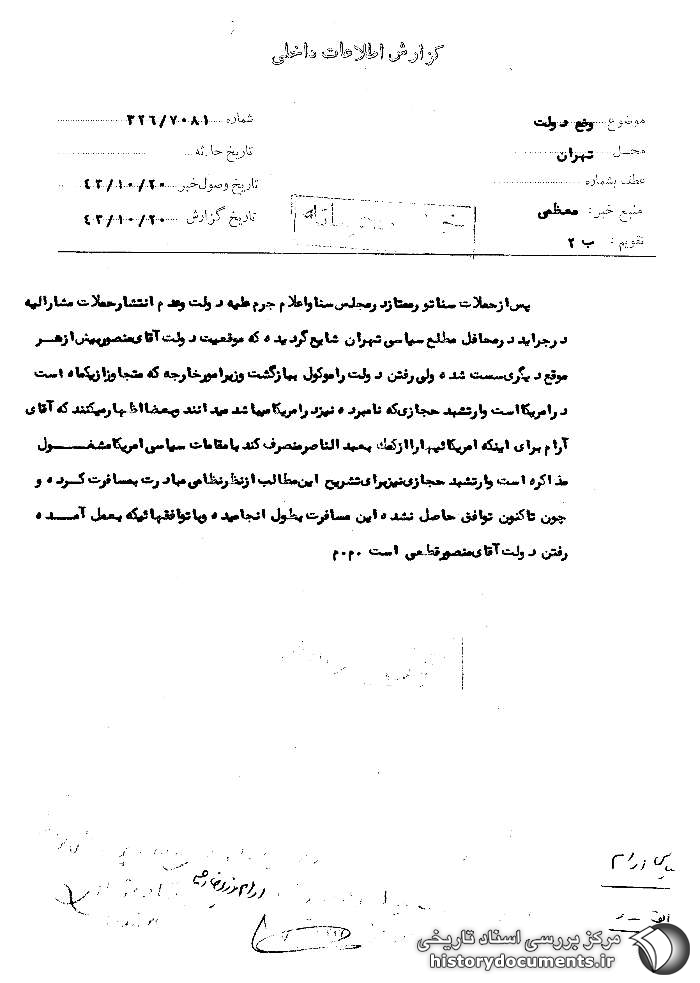 گزارش اطلاعات داخلی
موضوع وضع دولت
شماره ۳۲۶/۷۰۸۱
محل تهران
تاریخ حادثه
عطف بشماره
تاریخ وصول خبر ۴۳/۱۰/۲۰
منبع خبر: معظمی
تاریخ گزارش ۴۳/۱۰/۲۰
تقویم: ب ۲
پس از حملات سناتور ممتاز در مجلس سنا و اعلام جرم علیه دولت و عدم انتشار حملات مشارالیه
در جراید در محافل مطلع سیاسی تهران شایع گردیده که موقعیت دولت آقای منصور بیش از هر
موقع دیگری سست شده ولی رفتن دولت را موکول ببازگشت وزیر امور خارجه که متجاوز از یکماه است
در امریکا است و ارتشبد حجازی که نامبرده نیز در امریکا میباشد میدانند و بعضا اظهار میکنند که آقای
آرام برای اینکه امریکائیها را از کمک بعبد الناصر منصرف کند با مقامات سیاسی امریکا مشغول
مذاکره است و ارتشبد حجازی نیز برای تشریح این مطالب از نظر نظامی مبادرت بمسافرت کرده و
چون تاکنون توافق حاصل نشده این مسافرت بطول انجامیده و با توافقهائیکه بعمل آمده
رفتن دولت آقای منصور قطعی است .م.م
مرکز بررسی اسناد تاریخی
historydocuments.ir